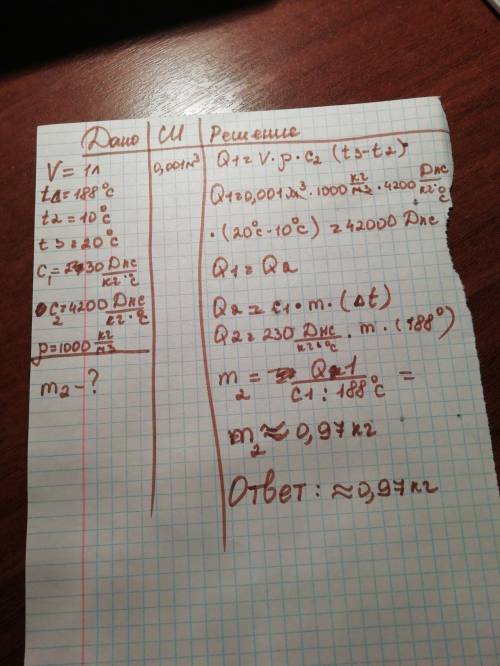 Дано СИ Решение
V = 1л 0,001м³
tΔ=188°c
t2=10°c
t3=20°c
C₁=230 Dнс/кг·°c
C₂=4200 Dнс/кг·°c
p=1000 кг/м3
m2-?
Q1= V·p·c₂ (t3-t2)
Q1=0,001м³·1000 кг/м3·4200 Dнс/кг·°c
·(20°c-10°c)=42000 Dнс
Q1=Q2
Q2=c1·m·(Δt)
Q2=230 Dнс/кг·°c·m·(188°)
m₂ = Q1/c1:188°c =
m₂≈0,97кг
Ответ: ≈0,97кг